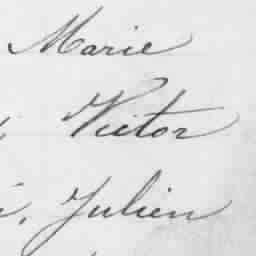 Marie
Victor
Julien